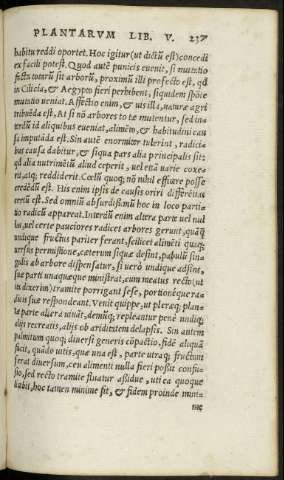 PLANTARVM LIB. V. 237
habitu reddi oportet. Hoc igitur (ut dictũ est) concedi
ex facili potest. Quod autẽ punicis evenit, si mutatio
facta totarũ sit arborũ, proximũ illi profecto est, qđ
in Cilicia, & Aegypto fieri perhibent, siquidem spõte
mutatio veniat. Affectio enim, & uis illa, naturæ agri
tribuẽda est. At si nõ arbores totæ mutentur, sed in-
terdũ id aliquibus eveniat, alimẽto, & habitudini cau
sa imputãda est. Sin autẽ enormiter tulerint, radici-
bus causa dabitur, & siqua pars alia principalis sit:
qđ alia nutrimẽtũ aliud ceperit, uel enã uarie coxe-
rit, atq; reddiderit. Cœlũ quoq; nõ nihil efficere posse
credẽdũ est. His enim ipsis de causis oriri differẽtias
certũ est. Sed omniũ absurdissimũ hoc in loco parti-
tio radicũ appareat. Interdũ enim altera parte uel nul
lus, uel certe pauciores radices arbores gerunt, quãq
undique fructus pariter ferant, scilicet alimẽti quoq;
versus permissione, cæterum sicque desint, pabulũ sin-
gulis ab arbore dispensatur, si uero undique adsint,
suæ parti unaquæque ministrat, cum meatus recto (ut
ita dixerim) tramite porrigant sese, portionẽque ra-
dicis suæ respondeant. Venit quippe, ut pleræq; plan-
tæ parte altera uivãt, demũq; repleantur penè undiq;
alijs recreatis, alijs ob ariditatem delapsis. Sin autem
punitum quoq; diversi generis cõpactio, fidẽ aliquã
facit, quãdo uitis, quæ una est, parte utraq; fructum
ferat diversum, ceu alimenti nulla fieri possit confu-
sio, sed recto tramite fluatur assidue, uti ea quoque
habit, hoc tamen minime sit, & fidem proinde mut-
nec